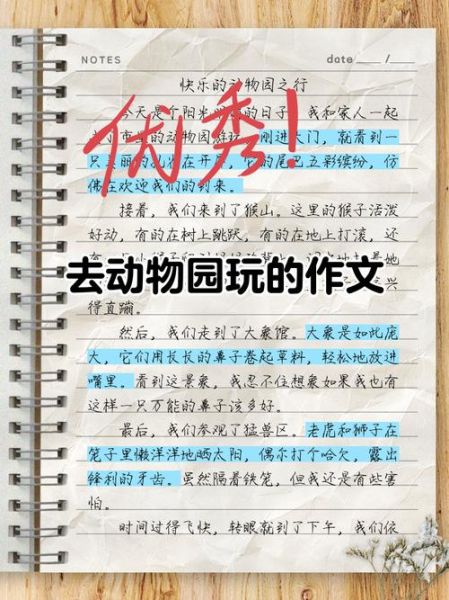 NOTES
date ___ / ___
快乐的动物园之行
优秀!
今天是个阳光的日子，我和家人一起
的动物园游玩。刚进大门，就看到一
只美丽的孔雀在开屏，它的尾巴五彩缤纷，仿
佛在欢迎我们的到来。
接着，我们来到了猴山。这里的猴子活泼
好动，有的在树上跳跃，有的在地上打滚，还
去动物园玩的作文
得直蹦。
然后，我们走到了大象馆。大象是如此庞
大，它们用长长的鼻子卷起草料，轻松地放进
嘴里。看到这景象，我忍不住想象如果我也有
这样一只万能的鼻子该多好。
最后，我们参观了猛兽区。老虎和狮子在
笼子里懒洋洋地晒太阳，偶尔打个哈欠，露出
锋利的牙齿。虽然隔着铁笼，但我还是有些害
怕。
时间过得飞快，转眼就到了下午，我们依